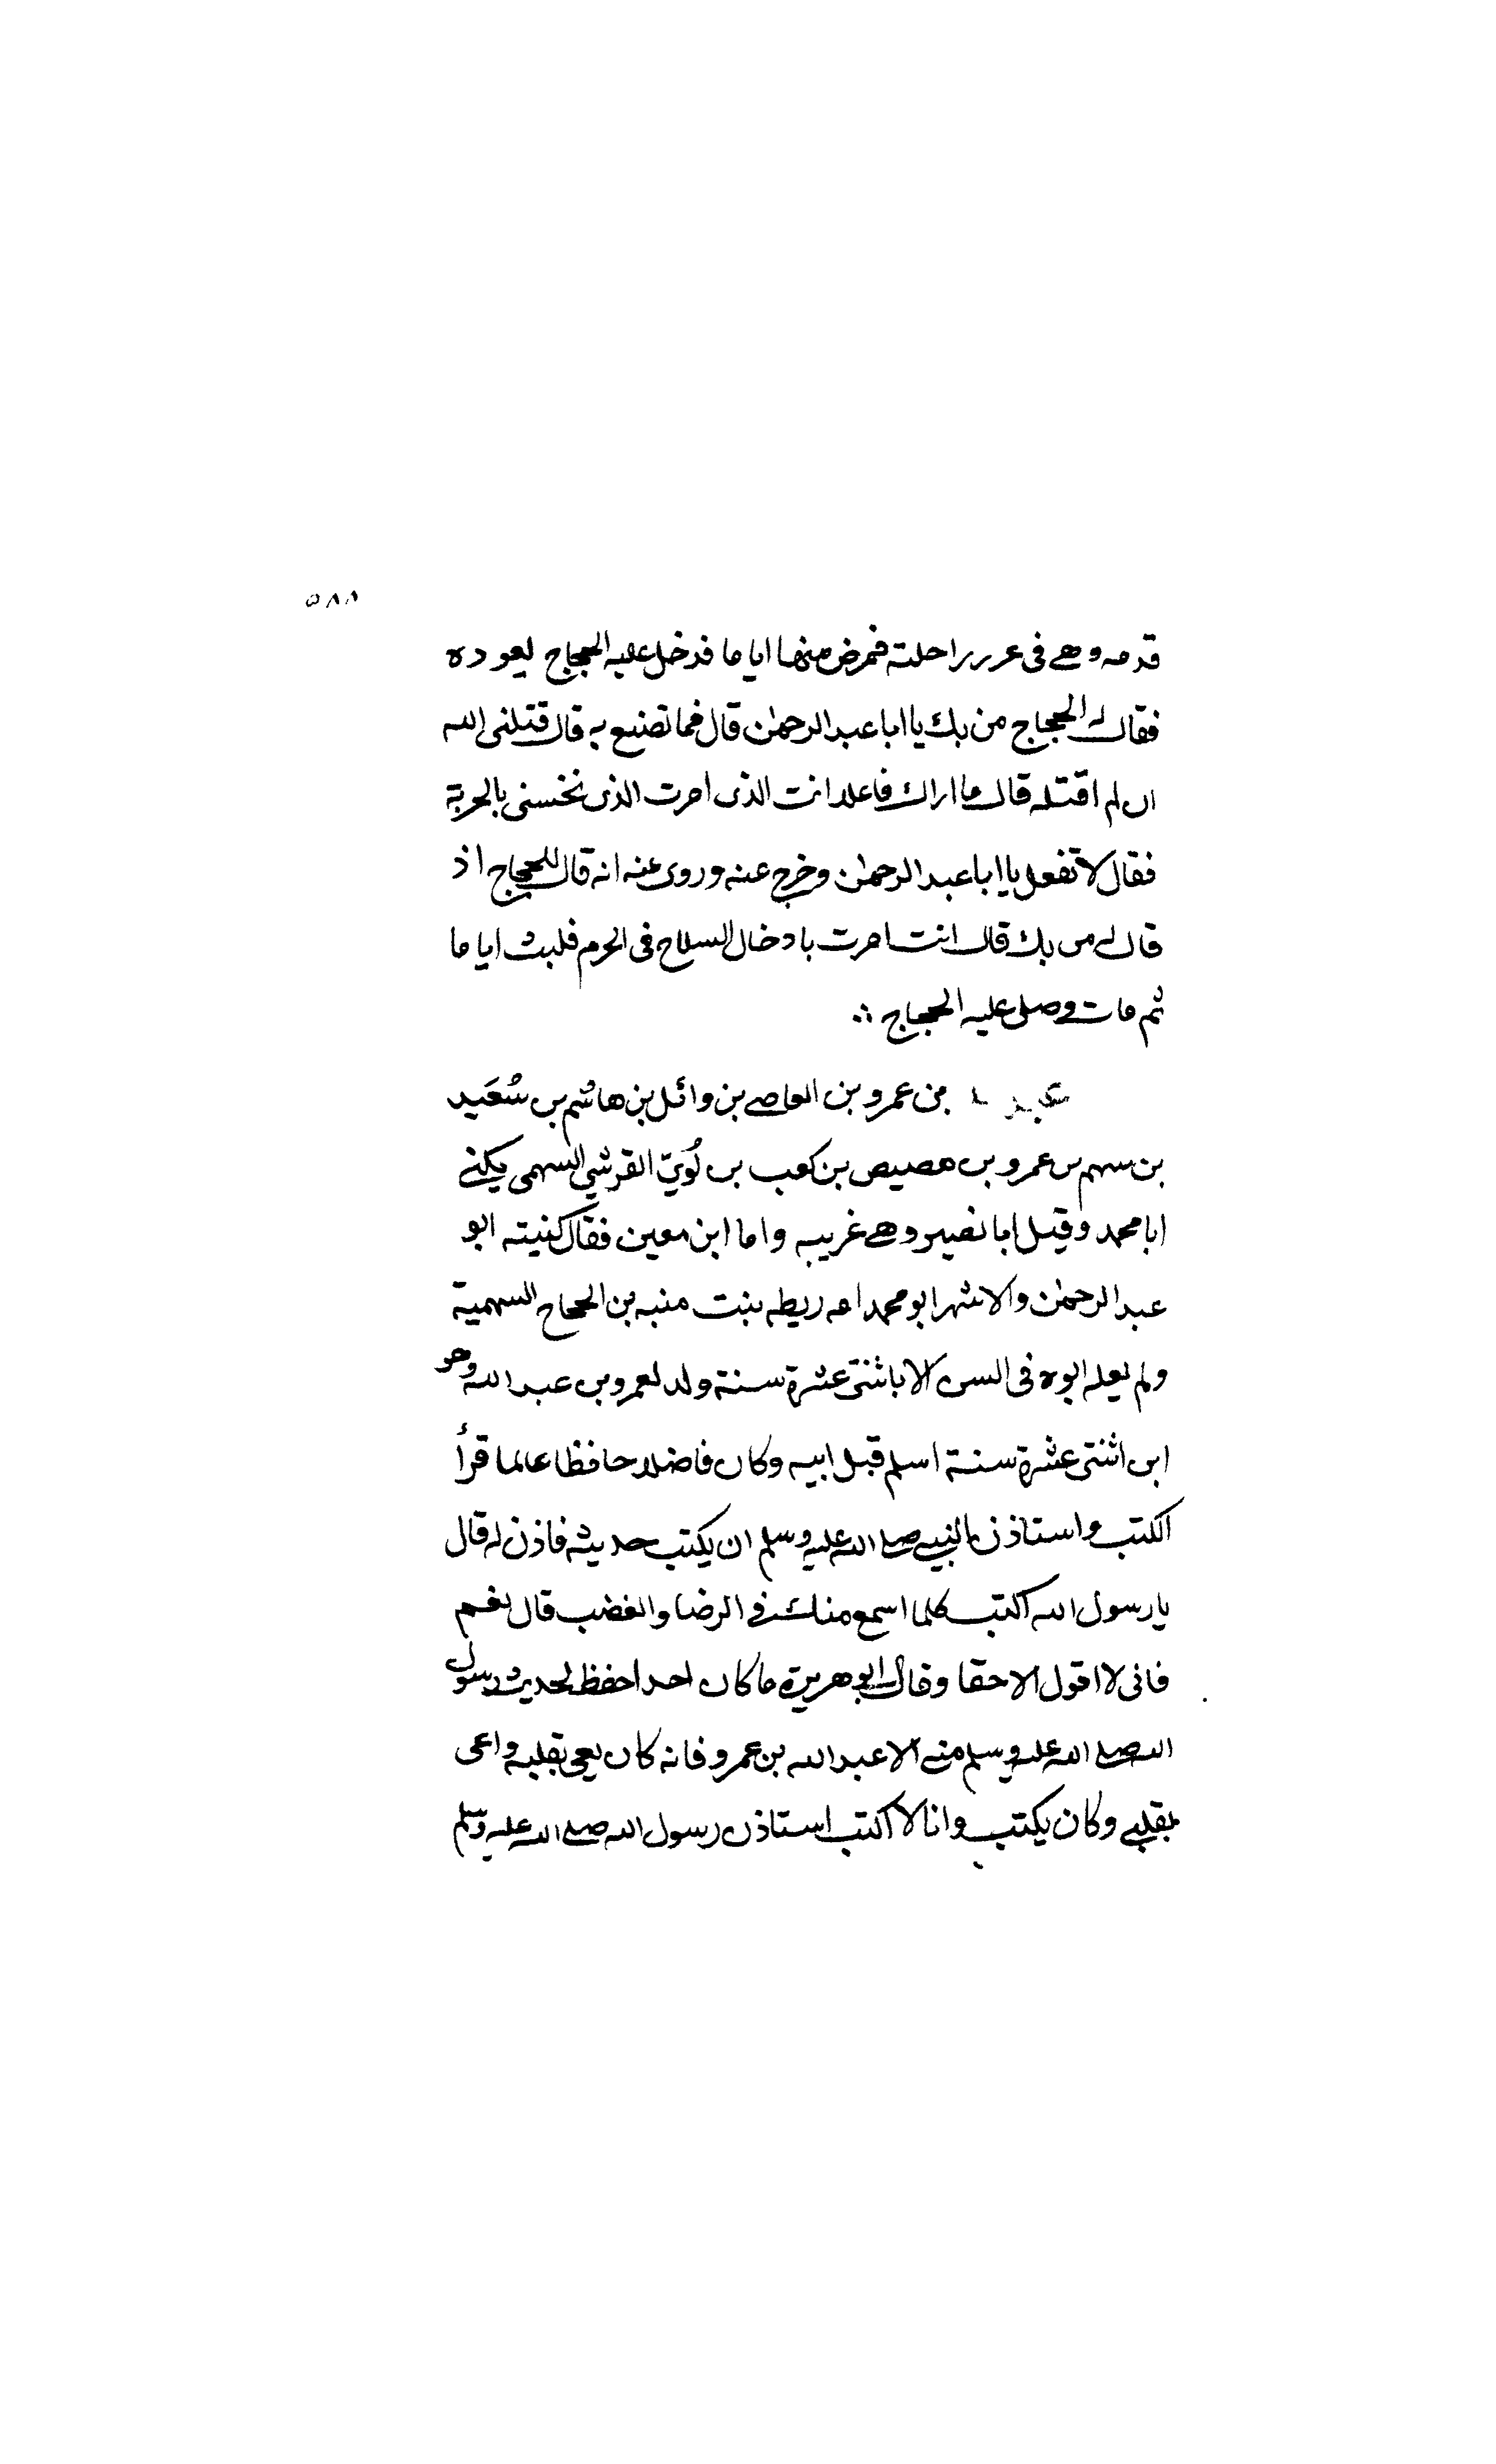 ٥٨٨
قدمه وهي في غرز راحلته فمرض منها اياما فدخل عليه الحجاج ليعوده
فقال له الحجاج من بك يا ابا عبد الرحمن قال فما تصنع به قال قتلني الله
ان لم اقتله قال ما اراك فاعلا انت الذي امرت الذي نخسني بالحربة
فقال لا تفعل يا ابا عبد الرحمن وخرج عنه وروي عنه انه قال للحجاج اذ
قال له من بك قال انت امرت بادخال السلاح في الحرم فلبث اياما
ثم مات وصلى عليه الحجاج ∴
بن عمرو بن العاصي بن وائل بن هاشم بن سُعَيد
بن سهم بن عمرو بن هصيص بن كعب بن لُؤيّ القرشي السهمي يكنى
ابا محمد وقيل ابا نصير وهي غريبه واما ابن معين فقال كنيته ابو
عبد الرحمن والاشهر ابو محمد امه ريطه بنت منبه بن الحجاج السهمية
ولم يعله ابوه في السن الا باثنتي عشرة سنة ولد لعمرو بن عبد الله وهو
ابن اثنتي عشرة سنة اسلم قبل ابيه وكان فاضلا حافظا عالما قرأ
الكتب واستاذن النبي صلى الله عليه وسلم ان يكتب حديثه فاذن له قال
يا رسول الله اكتب كلما اسمع منك في الرضا والغضب قال نعم
فاني لا اقول الا حقا وقال ابو هريرة ما كان احد احفظ لحديث رسول
الله صلى الله عليه وسلم مني الا عبد الله بن عمرو فانه كان يعي بقلبه واعي
بقلبي وكان يكتب وانا لا اكتب استاذن رسول الله صلى الله عليه وسلم